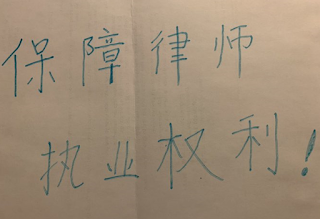 保障律师
执业权利!